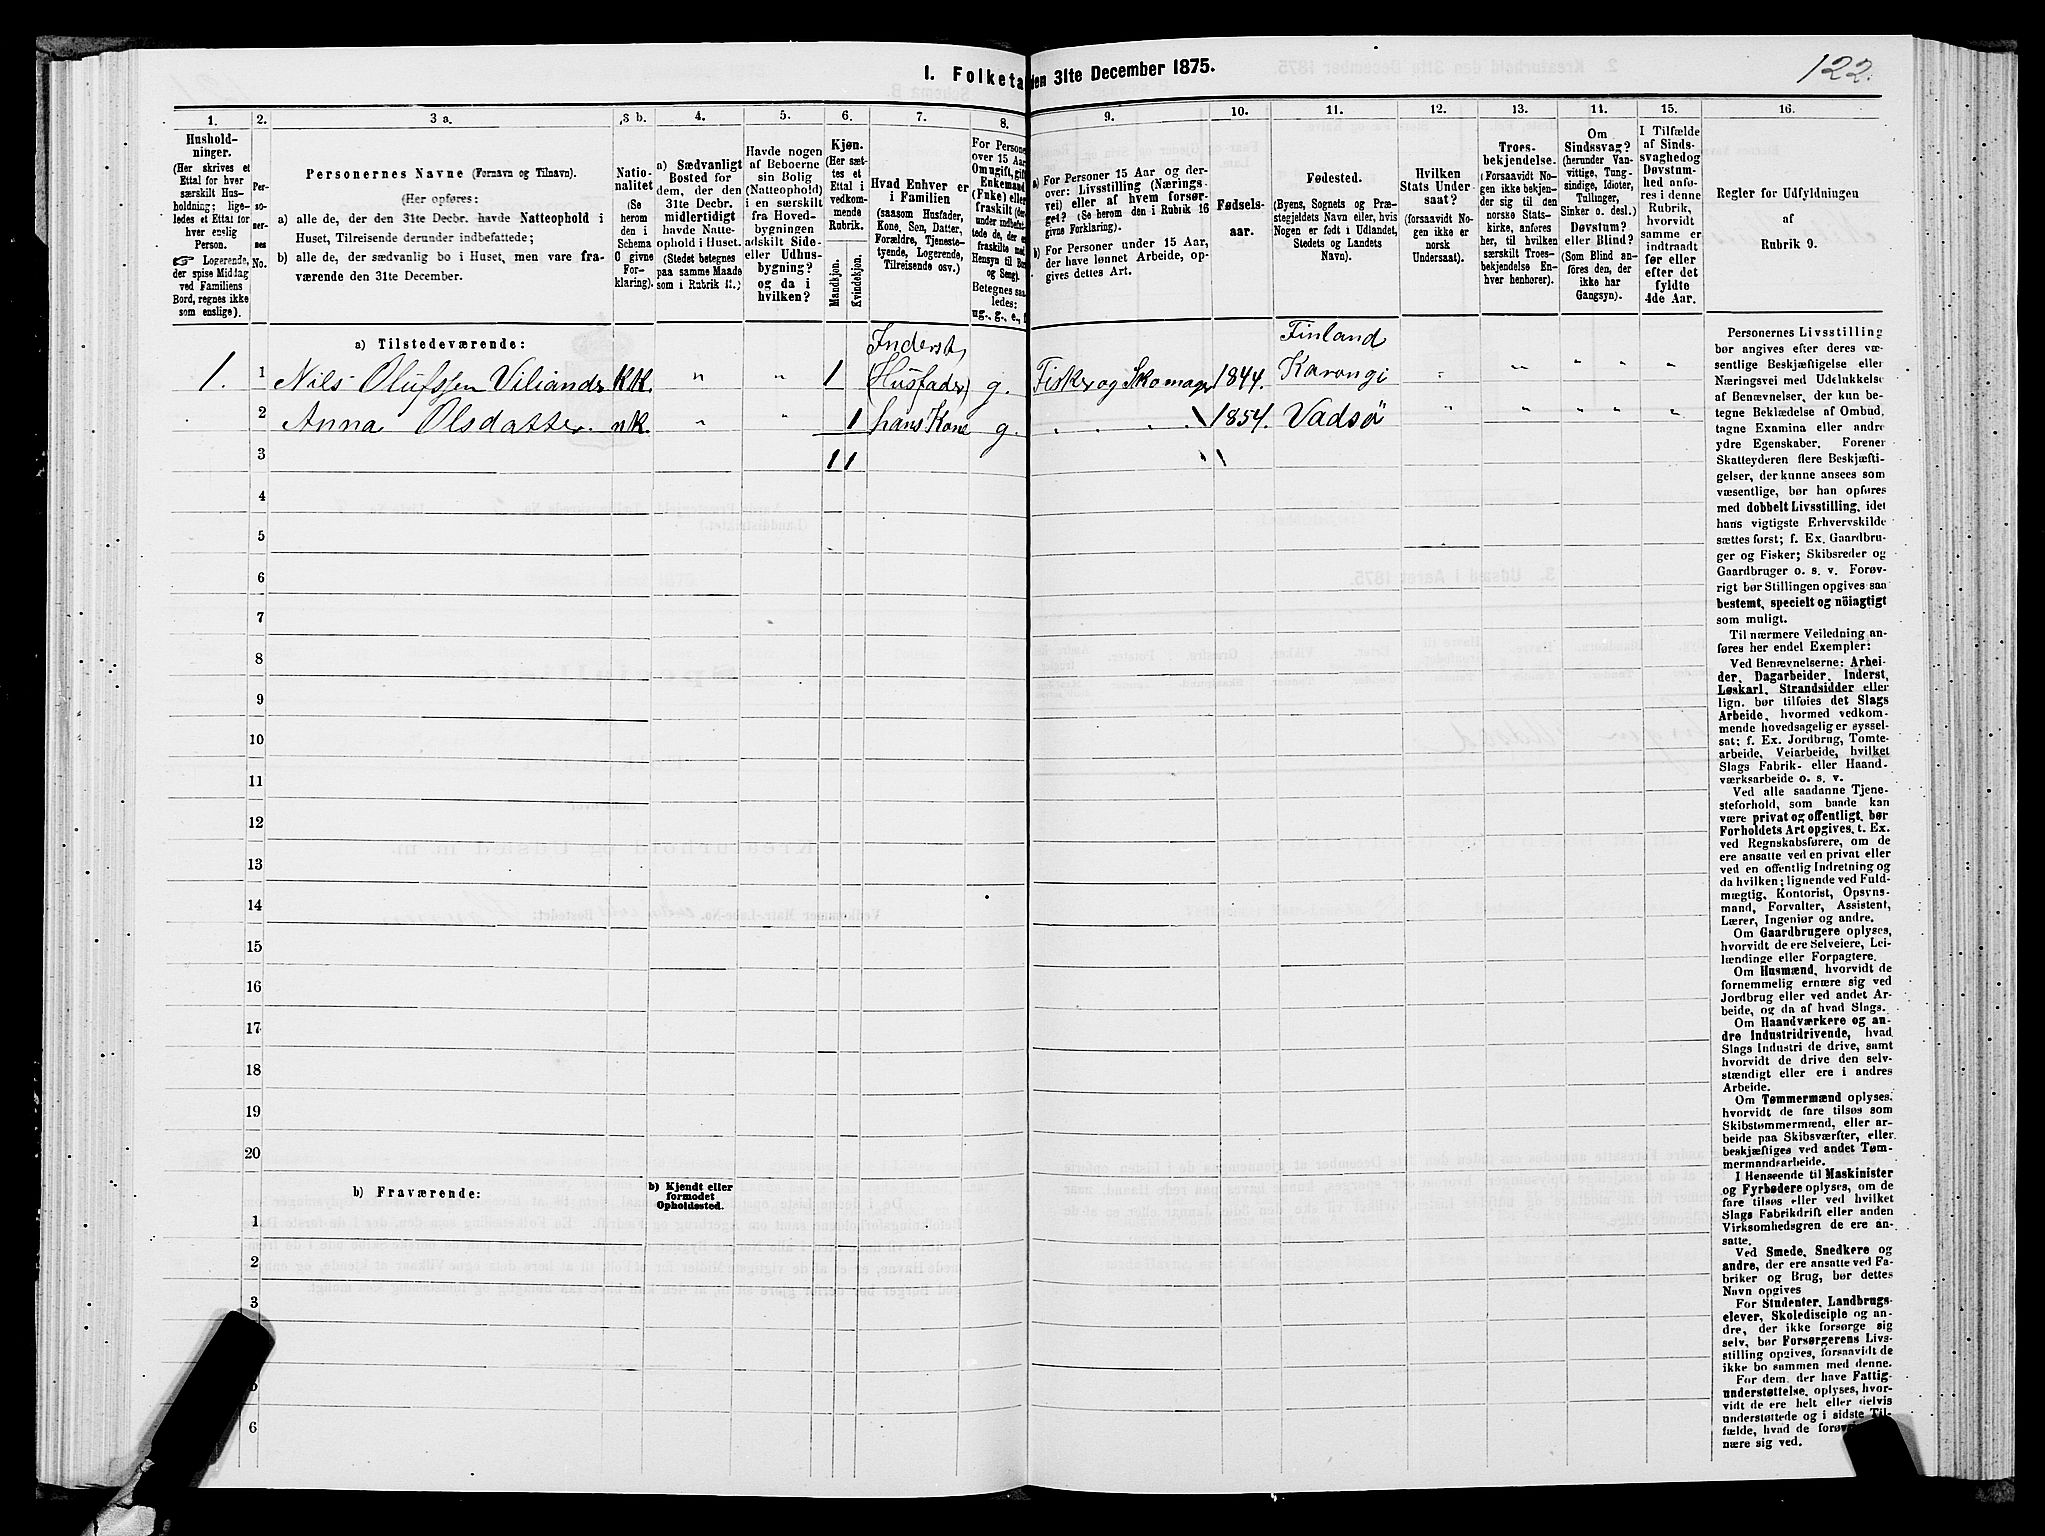 I. Folketa
den 31te December 1875.
122.
1.
2.
3 a.
3 b.
4.
5.
6.
7.
8.
9.
10.
11.
12.
13.
14.
15.
16.
Hushold-
ninger.
(Her skrives et
Ettal for hver
særskilt Hus-
holdning; lige-
ledes et Ettal for
hver enslig
Person.
☞ Logerende,
der spise Middag
ved Familiens
Bord, regnes ikke
som enslige).
Per-
so-
ner-
nes
No.
Personernes Navne (Fornavn og Tilnavn).
(Her opføres:
a) alle de, der den 31te Decbr. havde Natteophold i
Huset, Tilreisende derunder indbefattede;
b) alle de, der sædvanlig bo i Huset, men vare fra-
værende den 31te December.
Natio-
nalitet
(Se
herom
den i
Schema
O givne
For-
klaring).
a) Sædvanligt
Bosted for
dem, der den
31te Decbr.
midlertidigt
havde Natte-
ophold i Huset.
(Stedet betegnes
paa samme Maade
som i Rubrik 11.)
Havde nogen
af Beboerne
sin Bolig
(Natteophold)
i en særskilt
fra Hoved-
bygningen
adskilt Side-
eller Udhus-
bygning?
og da i
hvilken?
Kjøn.
(Her sæt-
tes et
Ettal i
vedkom-
mende
Rubrik.
Mandkjøn.
Kvindekjøn.
Hvad Enhver er
i Familien
(saasom Husfader,
Kone, Søn, Datter,
Forældre, Tjeneste-
tyende, Logerende,
Tilreisende osv.)
For Persone
over 15 Aar
Om ugift, gift
Enkemand
(Enke) eller
fraskilt (der-
under indbefat-
tede de, der er
fraskilte med
Hensyn til Bord
og Seng).
Betegnes saa
ledes:
ug., g., e., f.
a) For Personer 15 Aar og der-
over: Livsstilling (Nærings-
vei) eller af hvem forsør-
get? (Se herom den i Rubrik 16
givne Forklaring).
b) For Personer under 15 Aar,
der have lønnet Arbeide, op-
gives dettes Art.
Fødsels-
aar.
Fødested.
(Byens, Sognets og Præ-
stegjeldets Navn eller, hvis
Nogen er født i Udlandet,
Stedets og Landets
Navn).
Hvilken
Stats Under-
saat?
(forsaavidt No-
gen ikke er
norsk
Undersaat).
Troes-
bekjendelse.
(Forsaavidt No-
gen ikke bekjen-
der sig til den
norske Stats-
kirke, anføres
her, til hvilken
særskilt Troes-
bekjendelse En-
hver henhører).
Om
Sindssvag?
(herunder Van-
vittige, Tung-
sindige, Idioter,
Tullinger,
Sinker o. desl.)
Døvstum?
eller Blind?
(Som Blind an-
føres den, der
ikke har
Gangsyn).
I Tilfælde
af Sinds-
svaghed og
Døvstum-
hed anfø-
res i denne
Rubrik,
hvorvidt
samme er
indtraadt
før eller
efter det
fyldte
4de Aar.
Regler for Udfyldningen
af
Rubrik 9.
a) Tilstedeværende:
Inderst, Finland
1. 1 Nils Olufssen Viliander KK. " " 1 (Husfader) g. Fisker og Skomager 1844. Karongi " " " " "
2 Anna Olsdatter. nK. " " 1 hans Kone g. " " " " 1854. Vadsö " " " " "
3 1 1
4
5
6
7
8
9
10
11
12
13
14
15
16
17
18
19
20
b) Fraværende:
b) Kjendt eller
formodet
Opholdssted.
1
2
3
6
Personernes Livsstilling
bør angives efter deres væ-
sentlige Beskjæftigelse eller
Næringsvei med Udelukkelse
af Benævnelser, der kun be-
tegne Beklædelse af Ombud,
tagne Examina eller andre
ydre Egenskaber. Forener
Skatteyderen flere Beskjæfti-
gelser, der kunne ansees som
væsentlige, bør han opføres
med dobbelt Livsstilling, idet
hans vigtigste Erhvervskilde
sættes først; f. Ex. Gaardbru-
ger og Fisker; Skibsreder og
Gaardbruger o. s. v. Forøv-
rigt bør Stillingen opgives saa
bestemt, specielt og nöiagtigt
som muligt.
Til nærmere Veiledning an-
føres her endel Exempler:
Ved Benævnelserne: Arbei-
der, Dagarbeider, Inderst,
Løskarl, Strandsidder eller
lign. bør tilføies det Slags
Arbeide, hvormed vedkom-
mende hovedsagelig er syssel-
sat; f. Ex. Jordbrug, Tomte-
arbeide, Veiarbeide, hvilket
Slags Fabrik- eller Haand-
værksarbeide o. s. v.
Ved alle saadanne Tjene-
steforhold, som baade kan
være privat og offentligt, bør
Forholdets Art opgives, t. Ex.
ved Regnskabsførere, om de
ere ansatte ved en privat eller
ved en offentlig Indretning og
da hvilken; lignende ved Fuld-
mægtig, Kontorist, Opsyns-
mand, Forvalter, Assistent,
Lærer, Ingeniør og andre.
Om Gaardbrugere oplyses,
hvorvidt de ere Selveiere, Lei-
lændinge eller Forpagtere.
Om Husmænd, hvorvidt de
fornemmelig ernære sig ved
Jordbrug eller ved andet Ar-
beide, og da af hvad Slags.
Om Haandværkere og an-
dre Industridrivende, hvad
Slags Industri de drive, samt
hvorvidt de drive den selv-
stændigt eller ere i andres
Arbeide.
Om Tømmermænd oplyses,
hvorvidt de fare tilsøs som
Skibstømmermænd, eller ar-
beide paa Skibsværfter, eller
beskjæftiges ved andet Tøm-
mermandsarbeide.
I Henseende til Maskinister
og Fyrbødere oplyses, om de
fare tilsøs eller ved hvilket
Slags Fabrikdrift eller anden
Virksomhedsgren de ere an-
satte.
Ved Smede, Snedkere og
andre, der ere ansatte ved Fa-
briker og Brug, bør dettes
Navn opgives
For Studenter, Landbrugs-
elever, Skoledisciple og an-
dre, der ikke forsørge sig
selv, bør Forsørgerens Livs-
stilling opgives, forsaavidt de
ikke bo sammen med denne.
For dem, der have Fattig-
understøttelse, oplyses, hvor-
vidt de ere helt eller delvis
understøttede og i sidste Til-
fælde, hvad de forøv
nære sig ved.